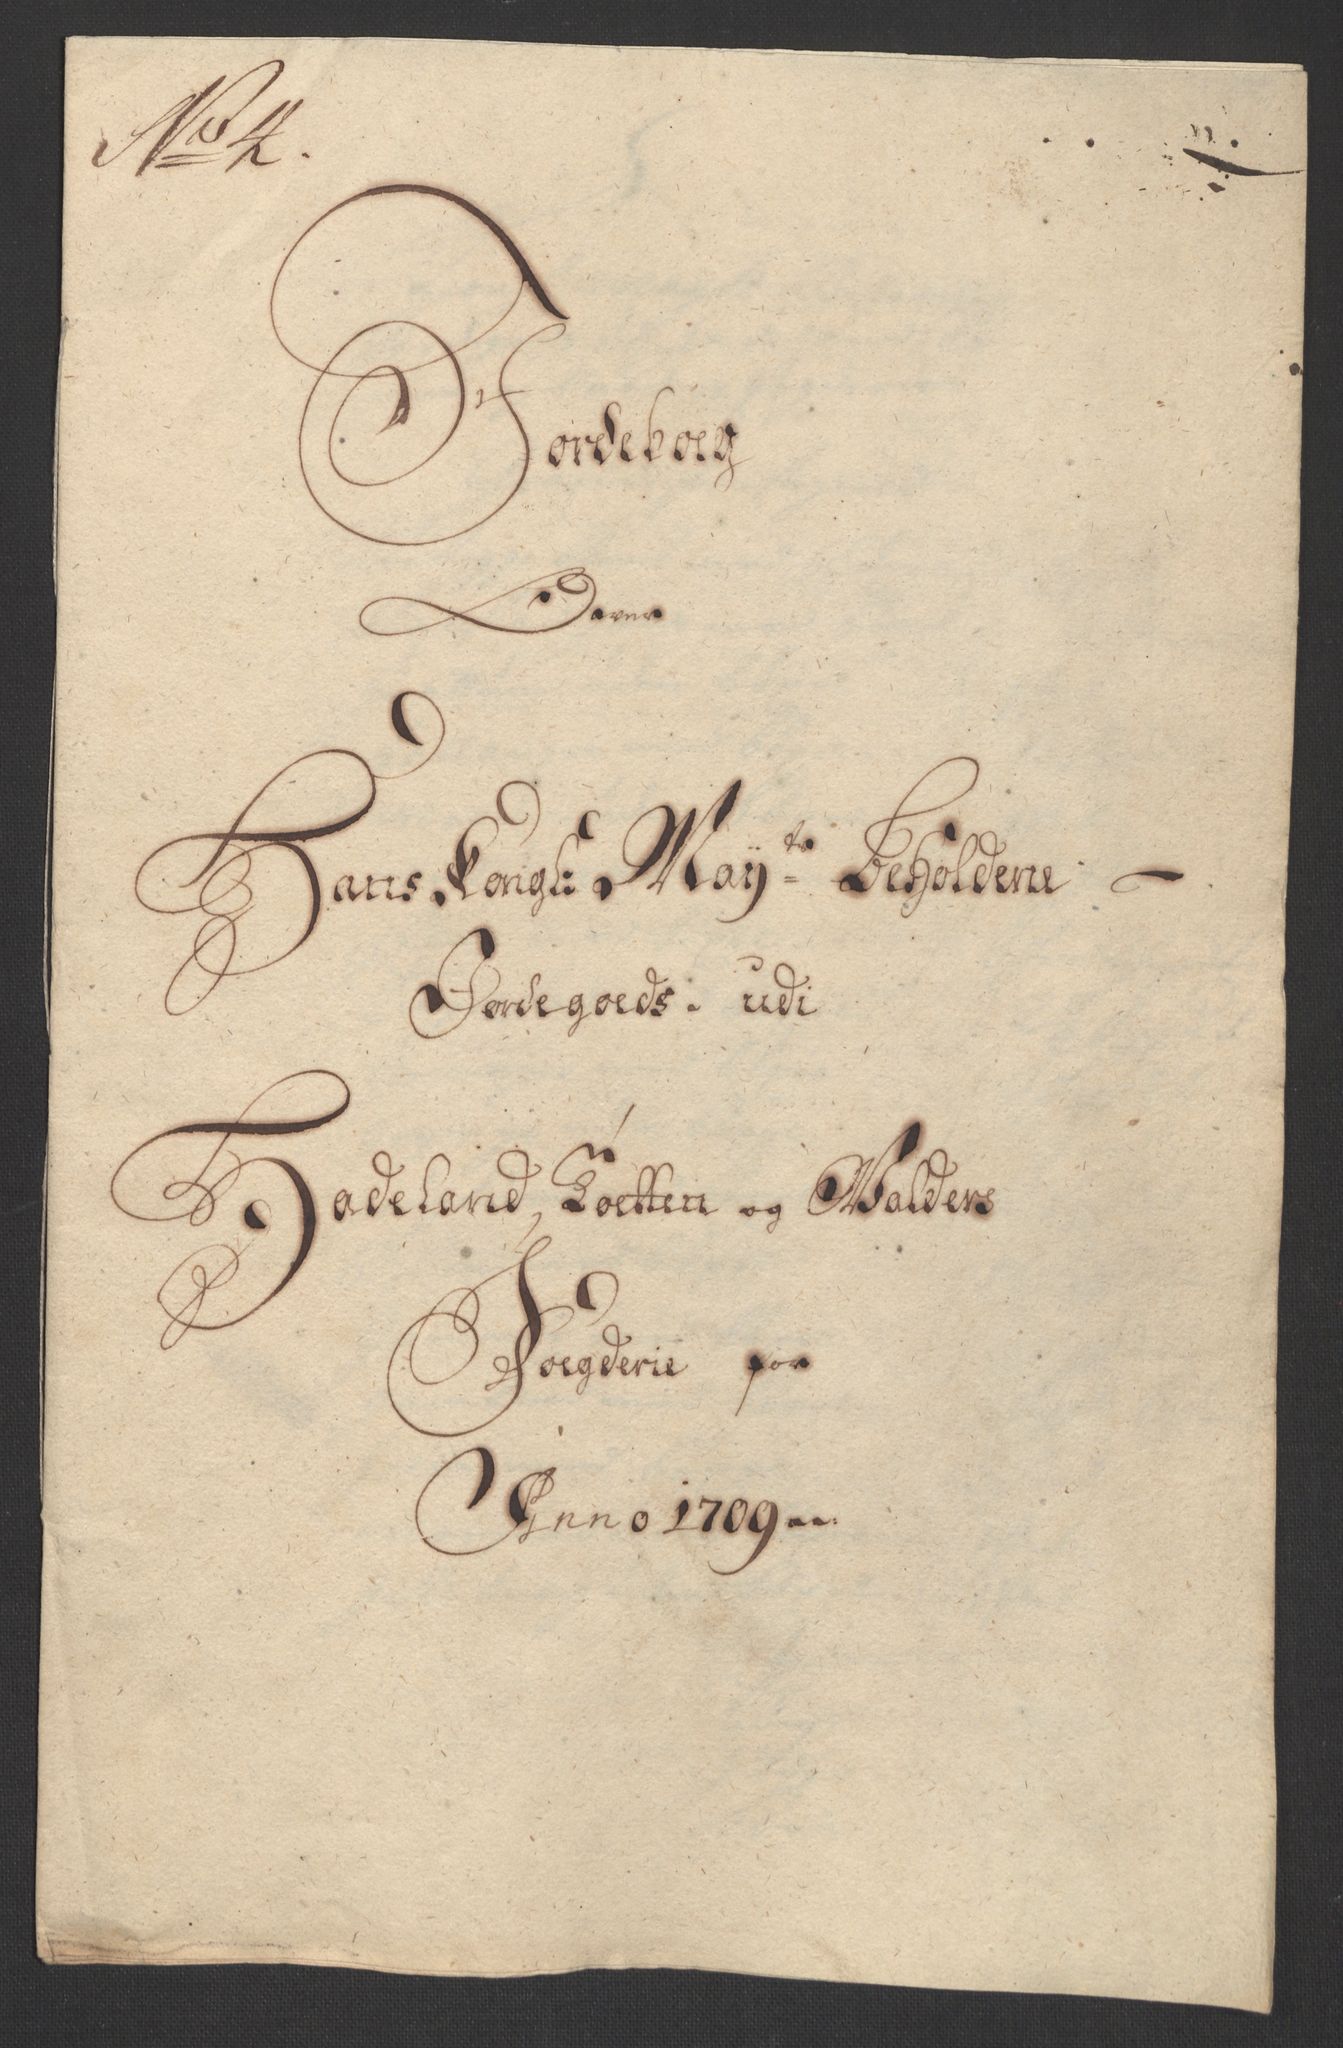 No 4.
Jordeboeg
Ofver
Hans Kongl: Mayts: beholdene -
Jordegoeds. udi
Hadeland, Toetten og Walders
Foegderie for
Anno 1709